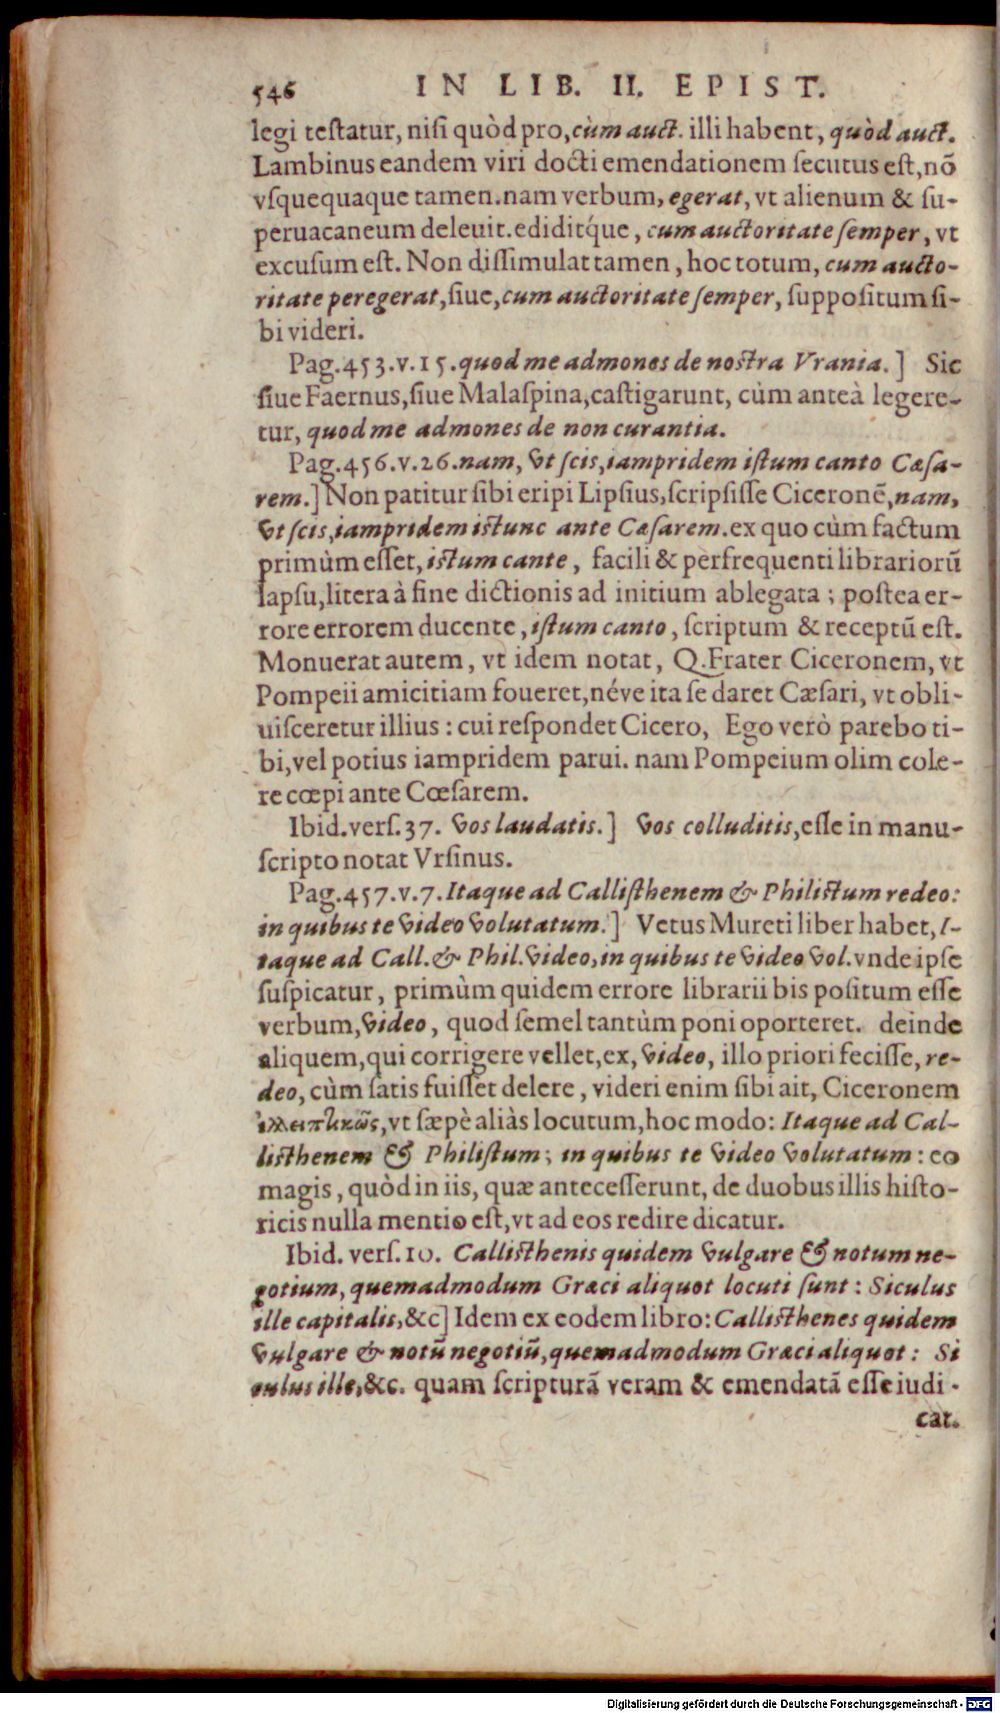 546 IN LIB. II. EPIST.
legi testatur, nisi quòd pro, cùm auct. illi habent, quòd auct.
Lambinus eandem viri docti emendationem secutus est, nõ
vsquequaque tamen. nam verbum, egerat, vt alienum & su-
peruacaneum deleuit. ediditq́ue, cum auctoritate semper, vt
excusum est. Non dissimulat tamen, hoc totum, cum aucto-
ritate peregerat, siue, cum auctoritate semper, suppositum si-
bi videri.
Pag. 453. v. 15. quod me admones de nostra Vrania.] Sic
siue Faernus, siue Malaspina, castigarunt, cùm anteà legere-
tur, quod me admones de non curantia.
Pag. 456. v. 26. nam, vt scis, iampridem istum canto Cæsa-
rem.] Non patitur sibi eripi Lipsius, scripsisse Ciceronẽ, nam,
vt scis, iampridem istunc ante Cæsarem. ex quo cùm factum
primùm esset, istum cante, facili & perfrequenti librariorũ
lapsu, litera à fine dictionis ad initium ablegata; postea er-
rore errorem ducente, istum canto, scriptum & receptũ est.
Monuerat autem, vt idem notat, Q. Frater Ciceronem, vt
Pompeii amicitiam foueret, néve ita se daret Cæsari, vt obli-
uisceretur illius: cui respondet Cicero, Ego verò parebo ti-
bi, vel potius iampridem parui. nam Pompeium olim cole-
re cœpi ante Cœsarem.
Ibid. vers. 37. Vos laudatis.] Vos colluditis, esse in manu-
scripto notat Vrsinus.
Pag. 457. v. 7. Itaque ad Callisthenem & Philistum redeo:
in quibus te video volutatum.] Vetus Mureti liber habet, I-
taque ad Call. & Phil. video, in quibus te video vol. vnde ipse
suspicatur, primùm quidem errore librarii bis positum esse
verbum, video, quod semel tantùm poni oporteret. deinde
aliquem, qui corrigere vellet, ex, video, illo priori fecisse, re-
deo, cùm satis fuisset delere, videri enim sibi ait, Ciceronem
ἐλλειπτικῶς, vt sæpè aliàs locutum, hoc modo: Itaque ad Cal-
listhenem & Philistum; in quibus te video volutatum: eo
magis, quòd in iis, quæ antecesserunt, de duobus illis histo-
ricis nulla mentio est, vt ad eos redire dicatur.
Ibid. vers. 10. Callisthenis quidem vulgare & notum ne-
gotium, quemadmodum Græci aliquot locuti sunt: Siculus
ille capitalis, &c] Idem ex eodem libro: Callisthenes quidem
vulgare & notũ negotiũ, quemadmodum Græci aliquot: Si
culus ille, &c. quam scripturã veram & emendatã esse iudi-
cat.
Digitalisierung gefördert durch die Deutsche Forschungsgemeinschaft - DFG